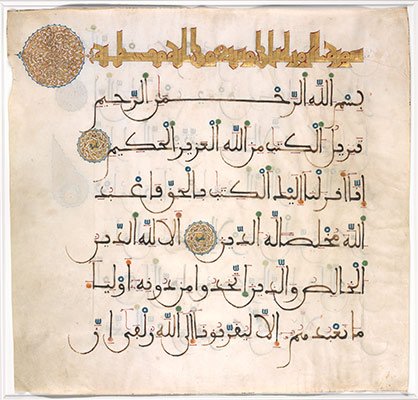 سورة
بسم الله الرحمن الرحيم
تنزيل الكتب من الله العزيز الحكيم
انا انزلنا اليك الكتب بالحق فاعبد
الله مخلصا له الدين الا لله الدين
الخالص والذين اتخذوا من دونه اوليا
ما نعبدهم الا ليقربونا الى الله زلفى ان